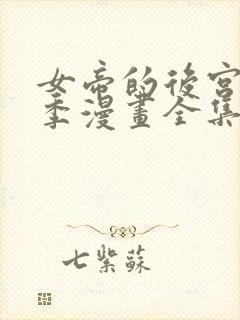 女帝的後宮
季漫畫全集
七紫蘇